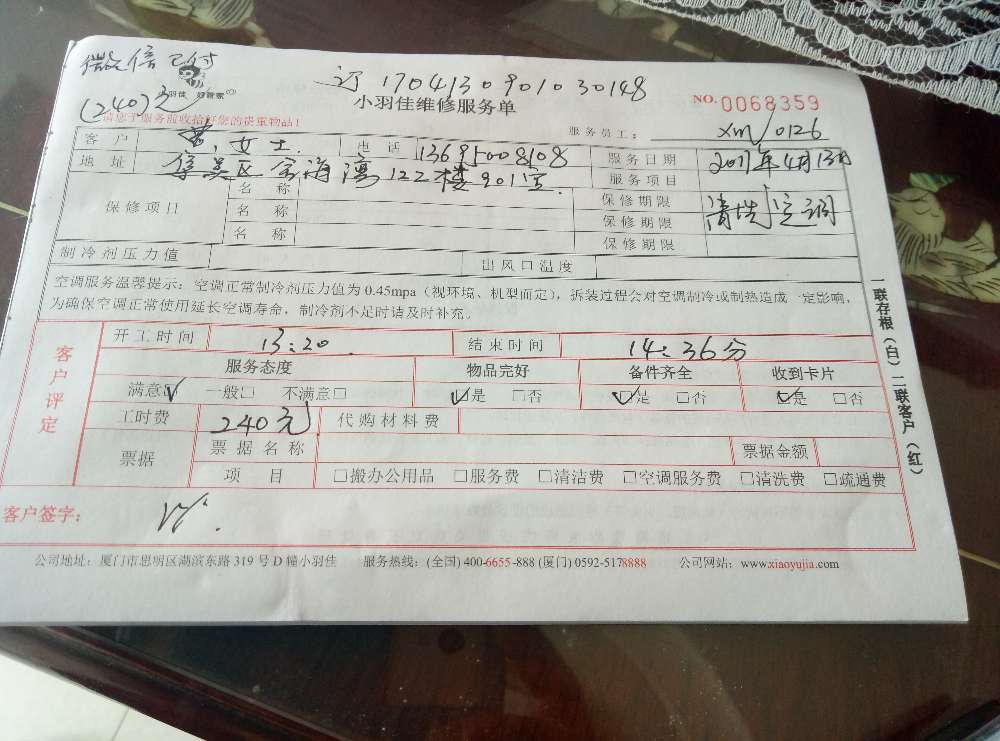 微信已付
(240)元
羽佳 好管家
订 1704130901030148
小羽佳维修服务单
NO.0068359
请您于服务前收拾好您的贵重物品!
服务员工: xm/0126
客户 女士 电话 13695008108 服务日期 2017年4月13日
地址 122楼901室 服务项目 清洗空调
保修项目 名称 保修期限
名称 保修期限
名称 保修期限
制冷剂压力值 出风口温度
空调服务温馨提示:空调正常制冷剂压力值为0.45mpa(视环境、机型而定),拆装过程会对空调制冷或制热造成一定影响,
为确保空调正常使用延长空调寿命,制冷剂不足时请及时补充。
客户评定
开工时间 13:20 结束时间 14:36分
服务态度 物品完好 备件齐全 收到卡片
满意☑ 一般□ 不满意□ ☑是 □否 ☑是 □否 ☑是 □否
工时费 240元 代购材料费
票据 票据名称 票据金额
项目 □搬办公用品 □服务费 □清洁费 □空调服务费 □清洗费 □疏通费
客户签字:
公司地址:厦门市思明区湖滨东路319号D幢小羽佳 服务热线:(全国)400-6655-888 (厦门)0592-5178888 公司网站:www.xiaoyujia.com
一联存根(白)二联客户(红)